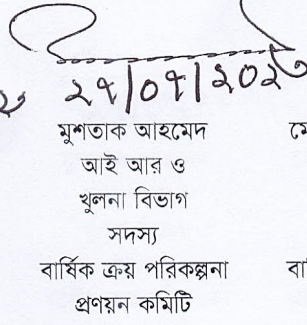 মুশতাক আহমেদ
আই আর ও
খুলনা বিভাগ
সদস্য
বার্ষিক ক্রয় পরিকল্পনা
প্রণয়ন কমিটি